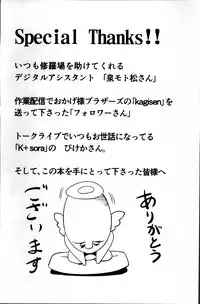 Special Thanks!!
いつも修羅場を助けてくれる
デジタルアシスタント 「泉モト松さん」
作業配信でおかげ様ブラザーズの「kagisen」を
送って下さった「フォロワーさん」
トークライブでいつもお世話になってる
「K+sora」の びけかさん。
そして、この本を手にとって下さった皆様へ
ありがとう
ございます